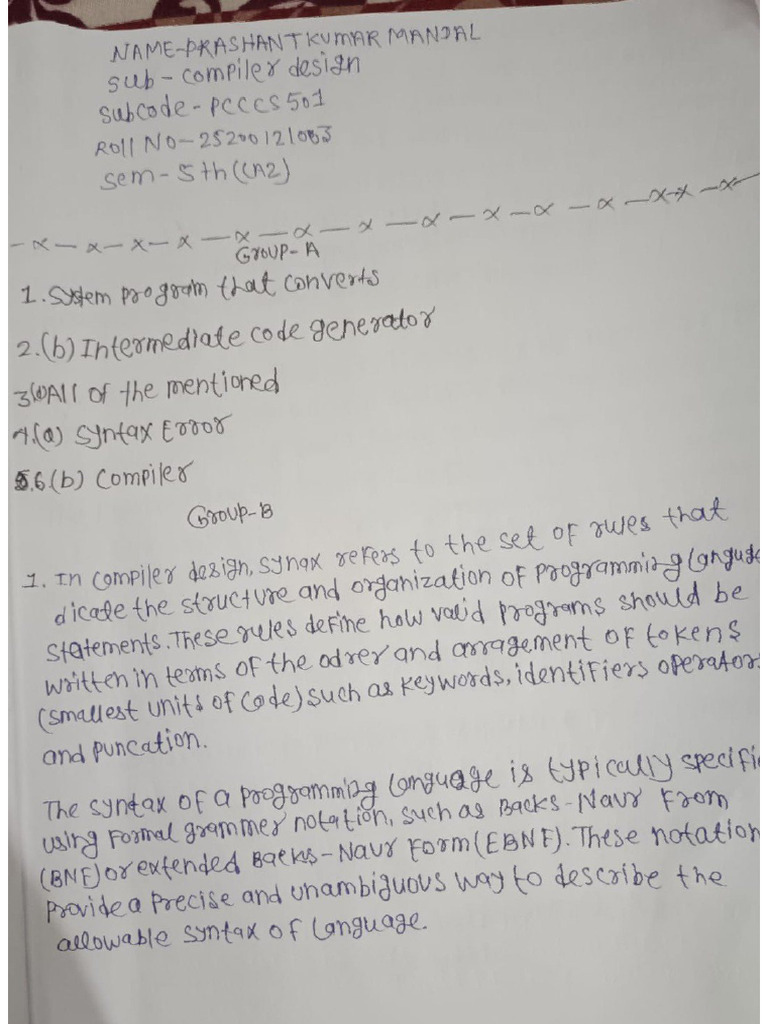 NAME-PRASHANT KUMAR MANDAL
sub - compiler design
subcode - PCCCS501
Roll No - 25200121083
sem - 5th (CA2)
GROUP-A
1. System program that converts
2.(b) Intermediate code generator
3 All of the mentioned
4.(a) Syntax Error
6.(b) Compiler
Group-B
1. In compiler design, synax refers to the set of rules that
dicate the structure and organization of programming languge
statements. These rules define how valid programs should be
written in terms of the odrer and arragement of tokens
(smallest units of code) such as keywords, identifiers operators
and puncation.
The syntax of a programming language is typically specifie
using formal grammer notation, such as Backs-Naur From
(BNF) or extended Backs-Naur Form (EBNF). These notation
provide a precise and unambiguous way to describe the
allowable syntax of language.